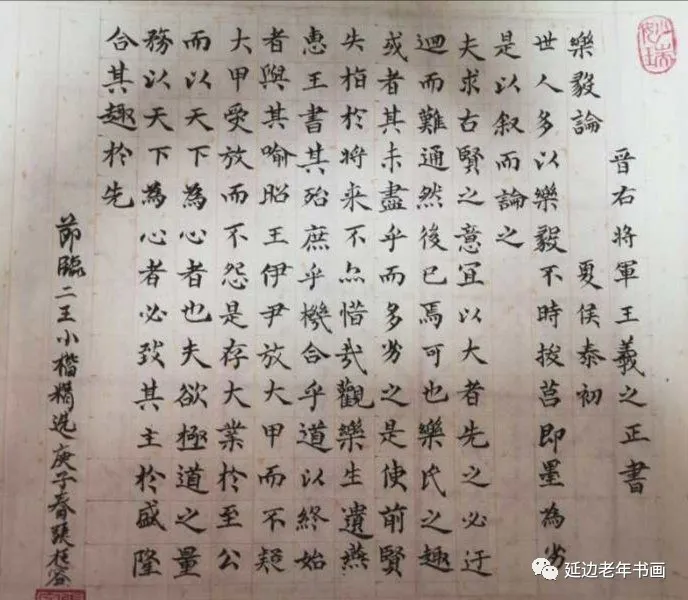 晉右將軍王羲之正書
樂毅論 夏侯泰初
世人多以樂毅不時拔莒即墨為劣
是以叙而論之
夫求古賢之意宜以大者先之必迂
迴而難通然後已焉可也樂氏之趣
或者其未盡乎而多劣之是使前賢
失指於將来不亦惜哉觀樂生遺燕
惠王書其殆庶乎機合乎道以終始
者與其喻昭王伊尹放大甲而不疑
大甲受放而不怨是存大業於至公
而以天下為心者也夫欲極道之量
務以天下為心者必致其主於盛隆
合其趣於先
節臨二王小楷精选庚子春張
延边老年书画